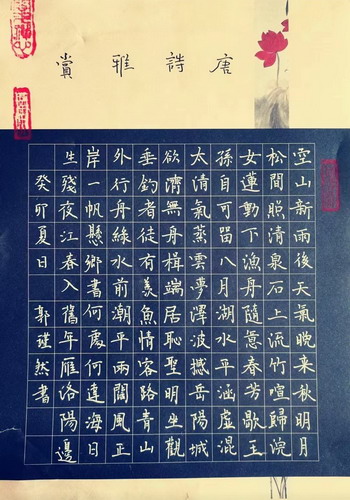 唐詩雅賞
空山新雨後天氣晚來秋明月
松間照清泉石上流竹喧歸浣
女蓮動下漁舟隨意春芳歇王
孫自可留八月湖水平涵虛混
太清氣蒸雲夢澤波撼岳陽城
欲濟無舟楫端居恥聖明坐觀
垂釣者徒有羨魚情客路青山
外行舟綠水前潮平兩闊風正
岸一帆懸鄉書何處何達海日
生殘夜江春入舊年雁洛陽邊
癸卯夏日 郭瑾然書